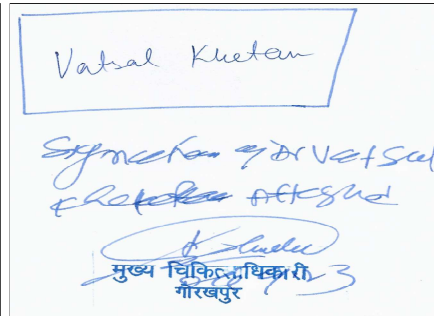 Vatsal Khetan
Signature of Dr Vatsal
Khetan Attested
मुख्य चिकित्साधिकारी
गोरखपुर